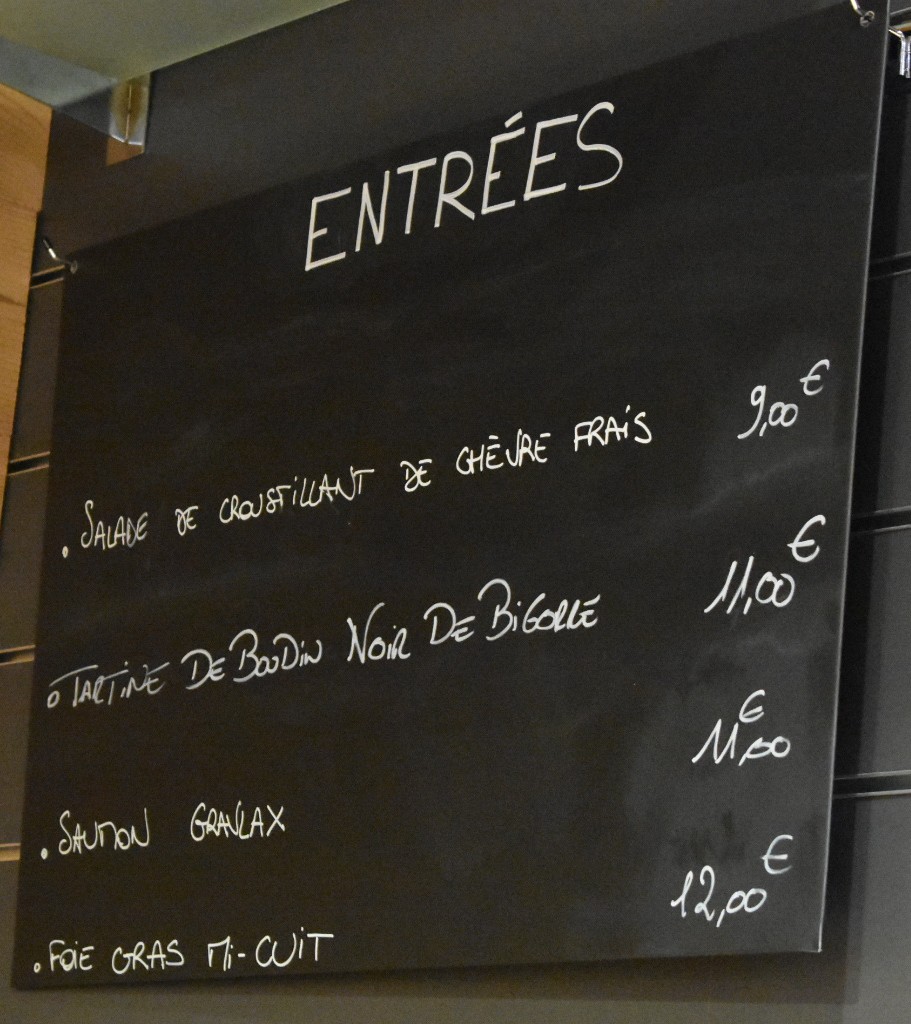 ENTRÉES
. SALADE DE CROUSTILLANT DE CHÈVRE FRAIS 9,00€
o TARTINE DE BOUDIN NOIR DE BIGORRE 11,00€
. SAUMON GRAVLAX 11,00€
. FOIE GRAS MI-CUIT 12,00€